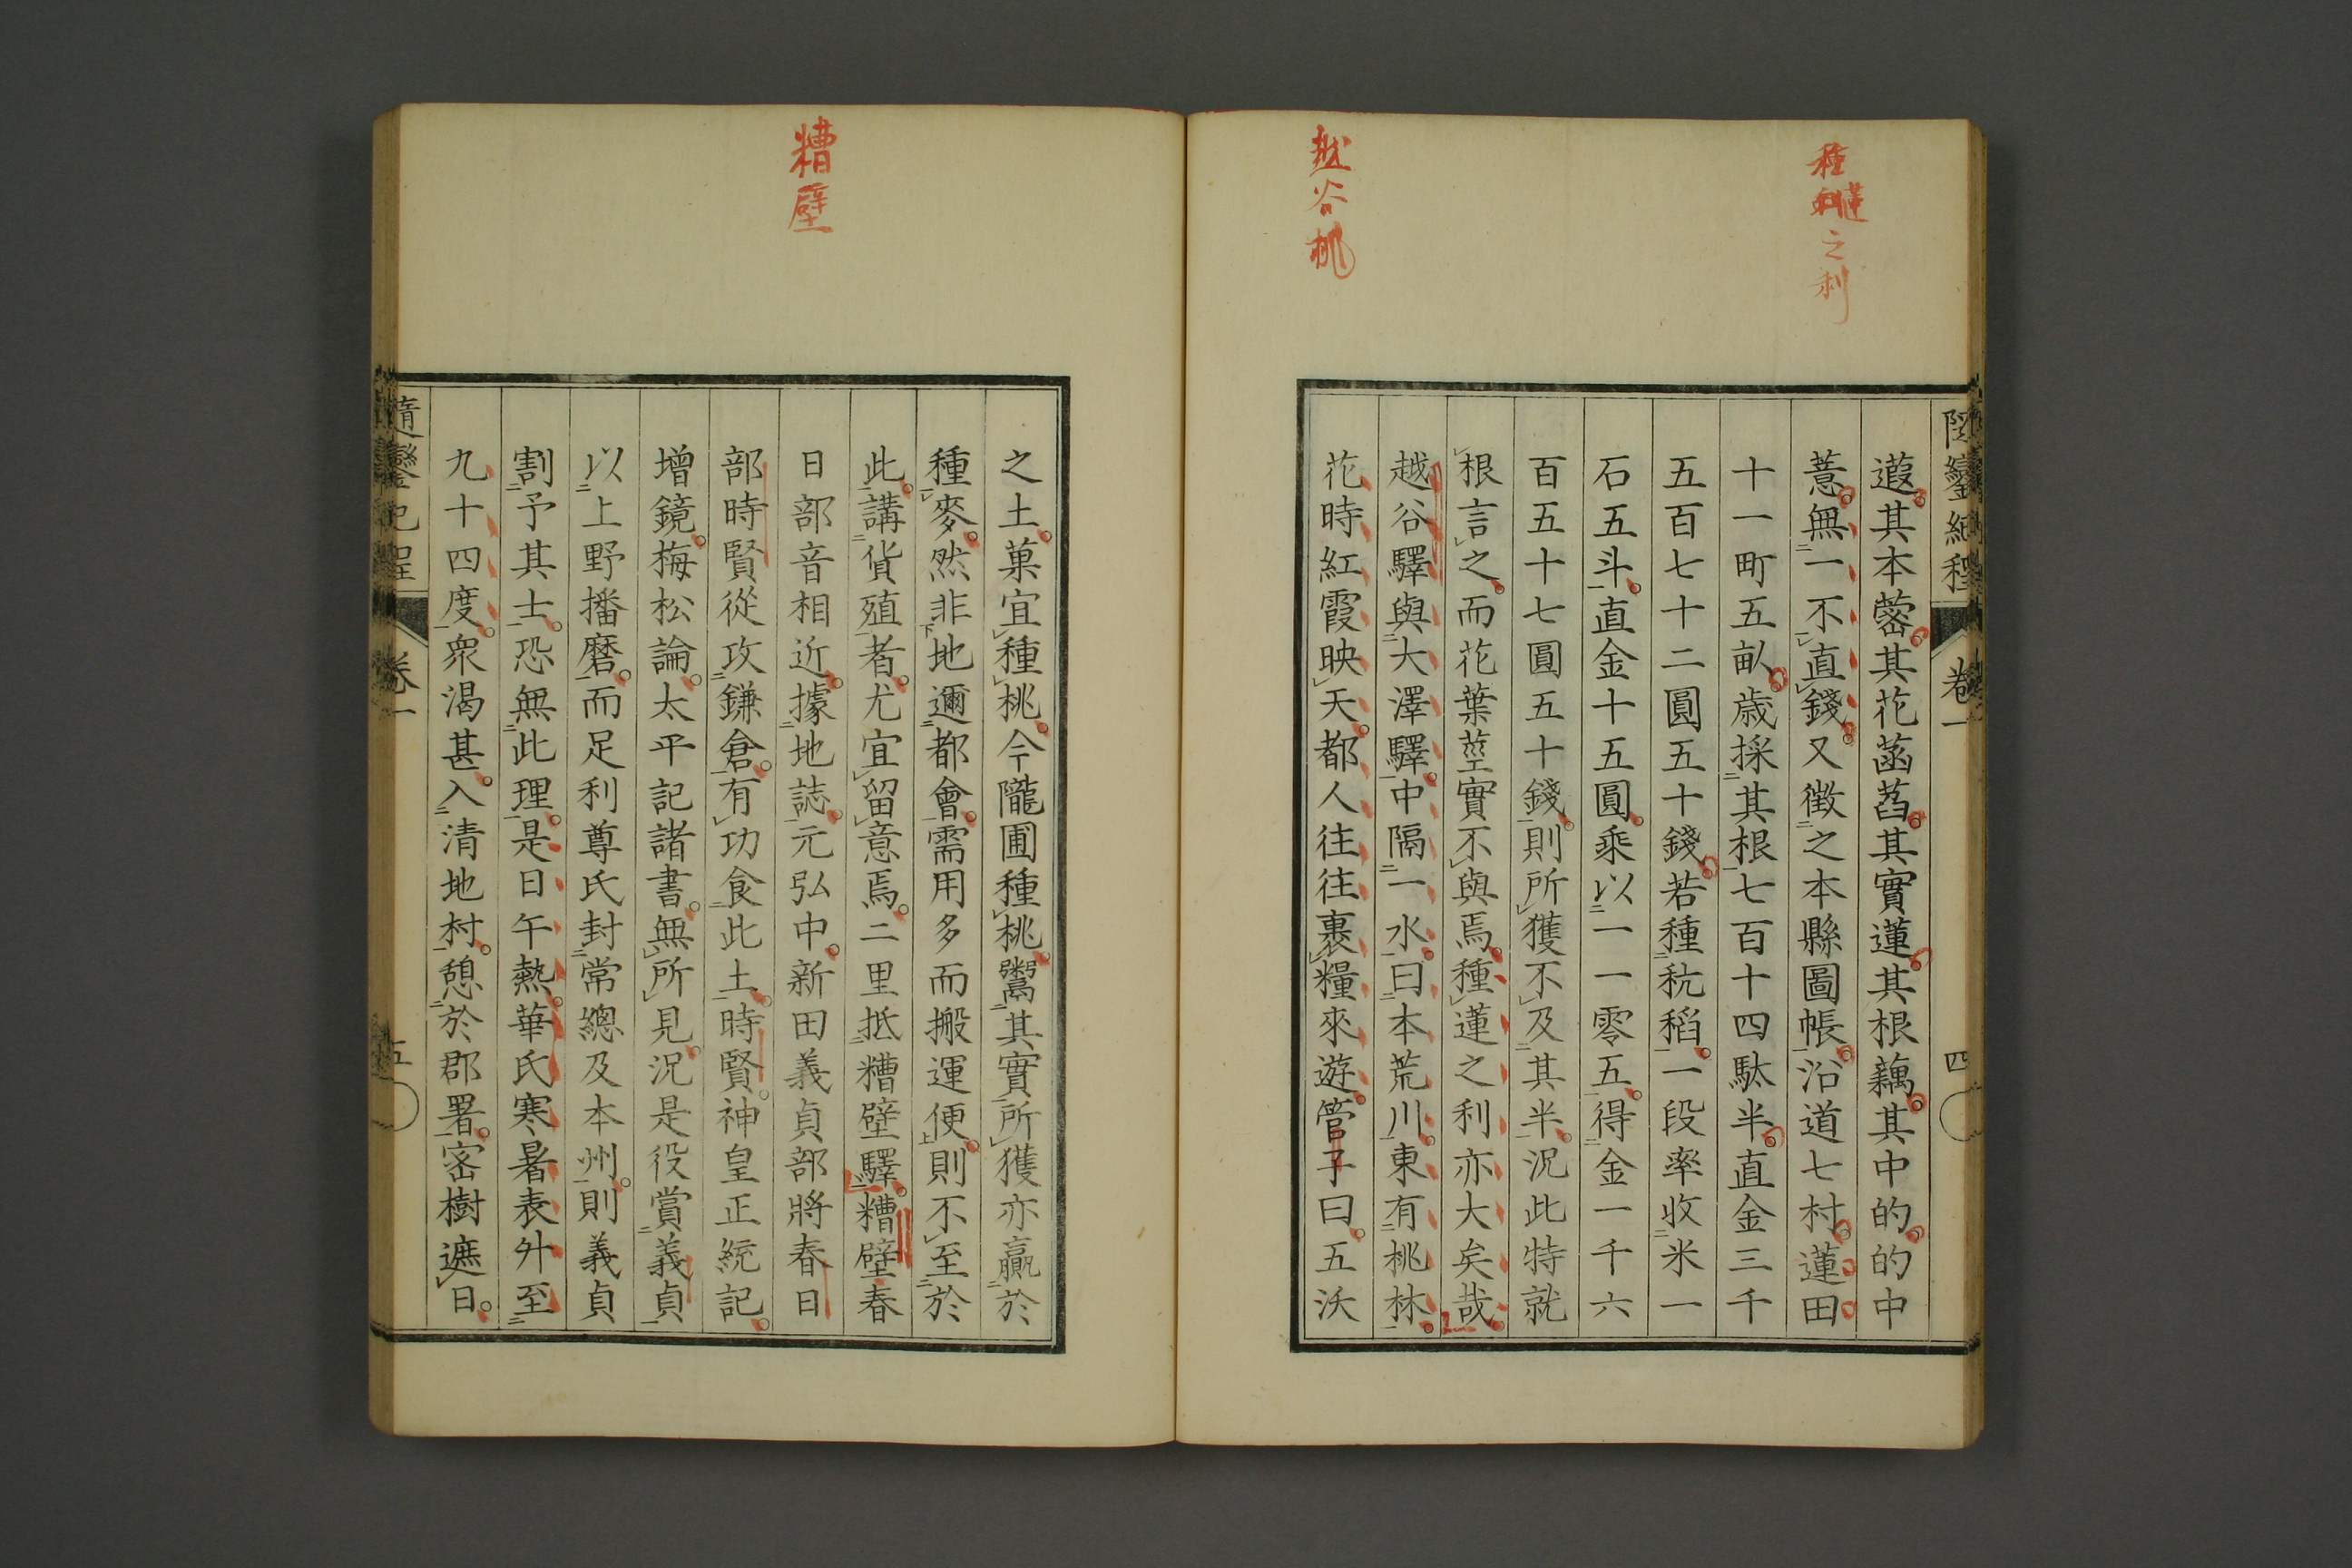 種蓮之利
越谷桃
隨鑾紀程
卷一
四
遐其本蔤其花菡萏其實蓮其根藕其中的的中
薏無一不直錢又徵之本縣圖帳沿道七村蓮田
十一町五畝歳採其根七百十四駄半直金三千
五百七十二圓五十錢若種秔稻一段率收米一
石五斗直金十五圓乘以一一零五得金一千六
百五十七圓五十錢則所獲不及其半況此特就
根言之而花葉莖實不與焉種蓮之利亦大矣哉
越谷驛與大澤驛中隔一水曰本荒川東有桃林
花時紅霞映天都人往往裹糧來遊管子曰五沃
糟壁
之土菓宜種桃今隴圃種桃鬻其實所獲亦贏於
種麥然非地邇都會需用多而搬運便則不至於
此講貨殖者尤宜留意焉二里抵糟壁驛糟壁春
日部音相近據地誌元弘中新田義貞部將春日
部時賢從攻鎌倉有功食此土時賢神皇正統記
增鏡梅松論太平記諸書無所見況是役賞義貞
以上野播磨而足利尊氏封常總及本州則義貞
割予其士恐無此理是日午熱華氏寒暑表外至
九十四度衆渴甚入清地村憩於郡署密樹遮日
隨鑾紀程
卷一
五